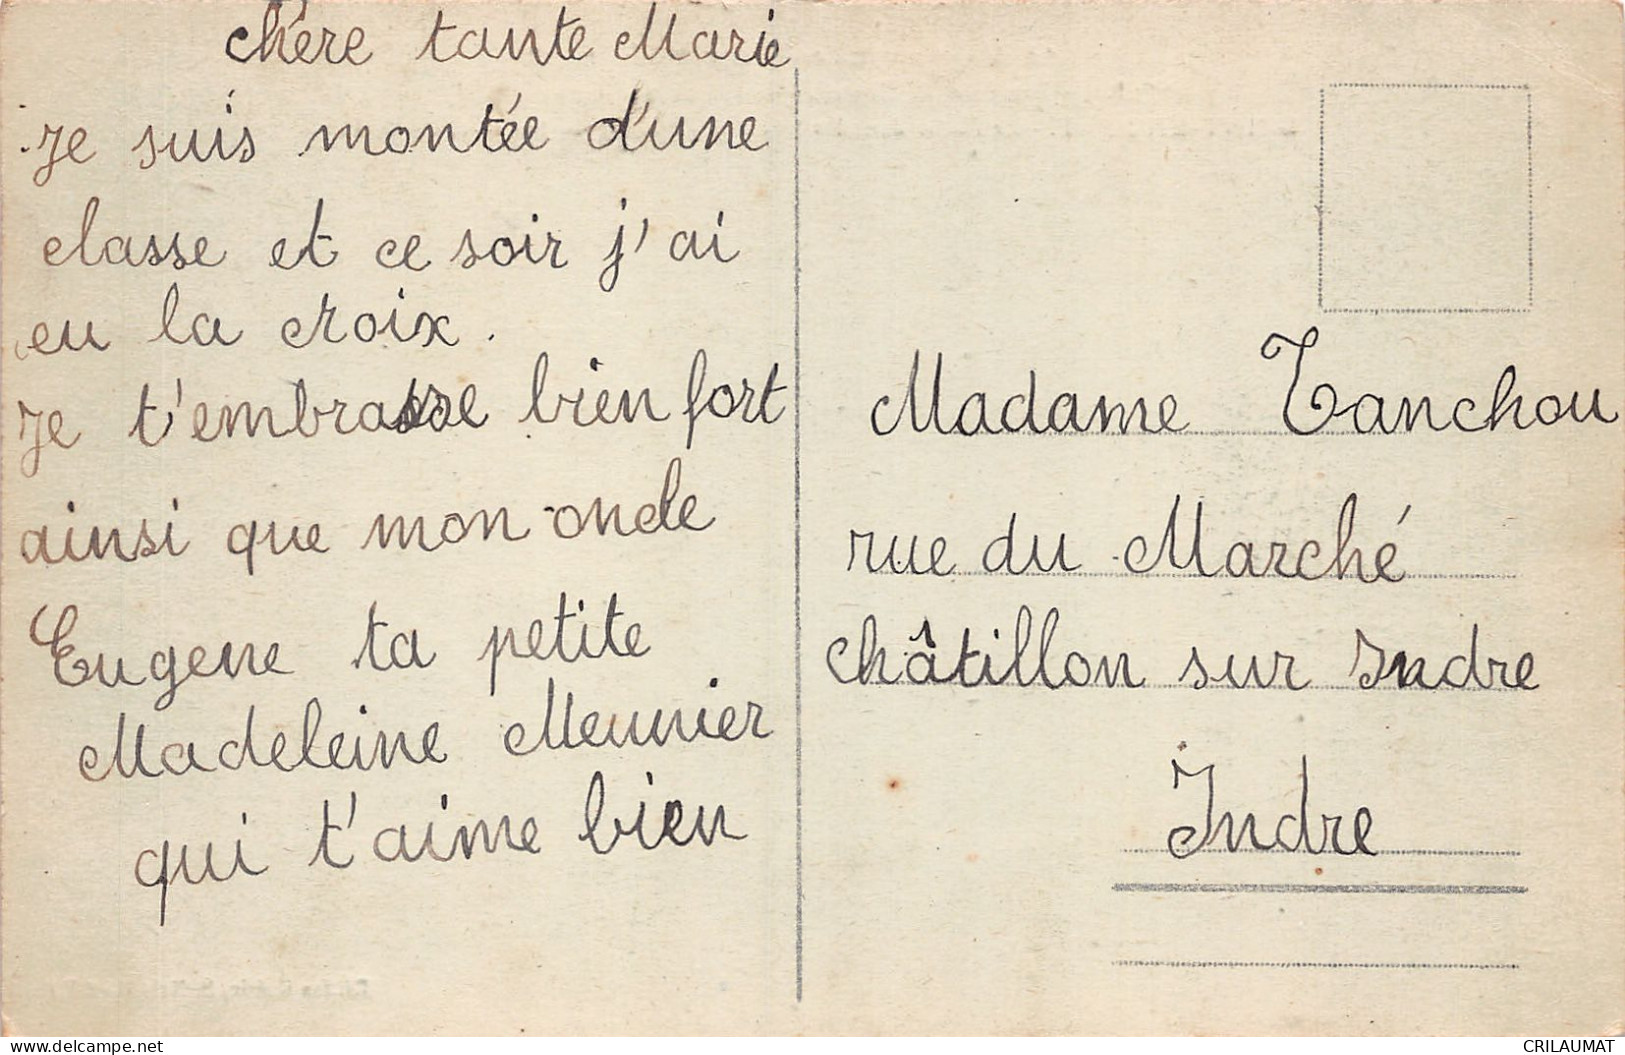 chère tante Marie
Je suis montée d'une
classe et ce soir j'ai
eu la croix.
Je t'embrasse bien fort
ainsi que mon oncle
Eugene ta petite
Madeleine Meunier
qui t'aime bien
Madame Tanchou
rue du Marché
châtillon sur Indre
Indre
www.delcampe.net
CRILAUMAT